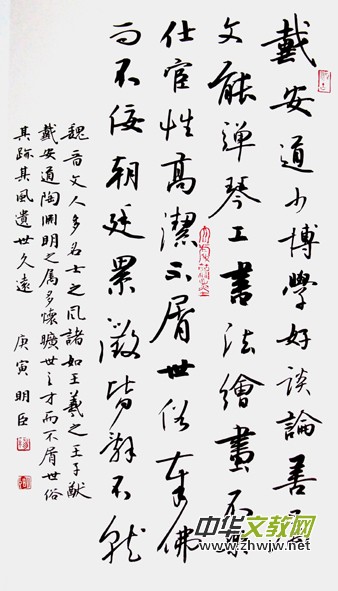 戴安道少博學好談論善
文能彈琴工書法繪畫不樂
仕宦性高潔不屑世俗奉佛
而不佞朝廷累徵皆辭不就
魏晋文人多名士之風諸如王羲之王子猷
戴安道陶淵明之属多懷曠世之才而不屑世俗
其跡其風遺世久遠 庚寅 明臣
中华文教网
www.zhwjw.net